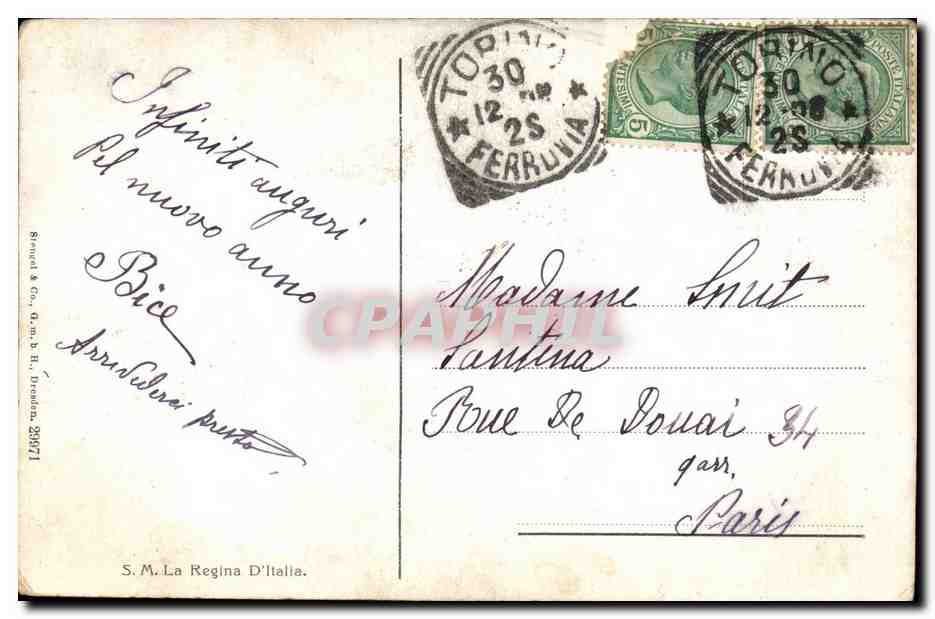 Infiniti auguri
Pel nuovo anno
Bice
Arrivederci presto
Stengel & Co., G.m.b.H., Dresden. 29971
S. M. La Regina D'Italia.
TORINO
30
12
2S
FERROVIA
TORINO
30
12 08
2S
FERROVIA
5
CENTESIMI
POSTE ITALIANE
CPAPHIL
Madame Smit
Santina
Rue De Douai 34
Paris